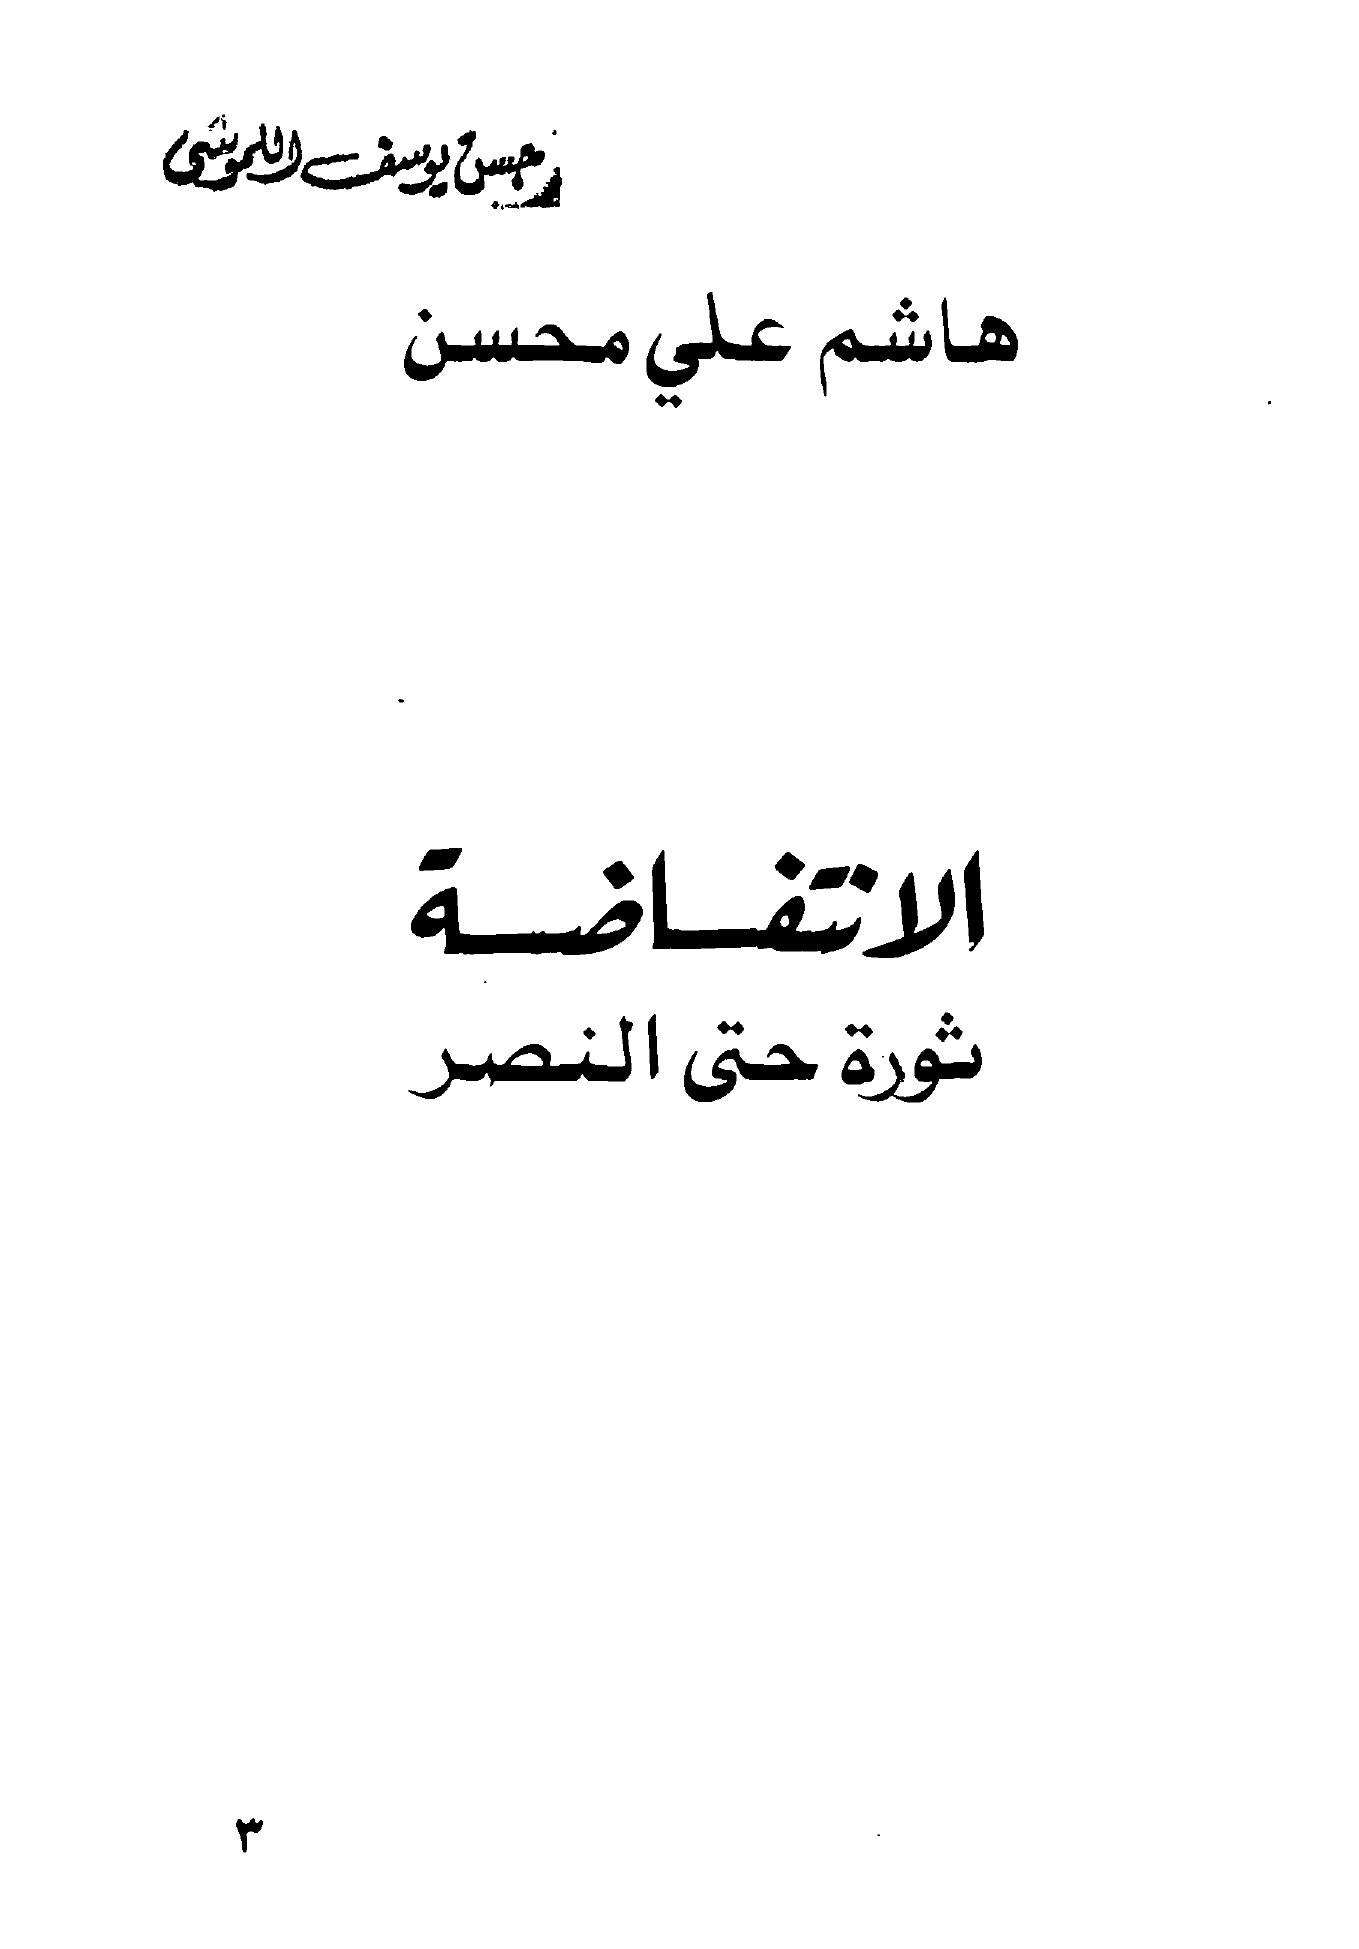 حسن يوسف
هاشم علي محسن
الانتفاضة
ثورة حتى النصر
٣